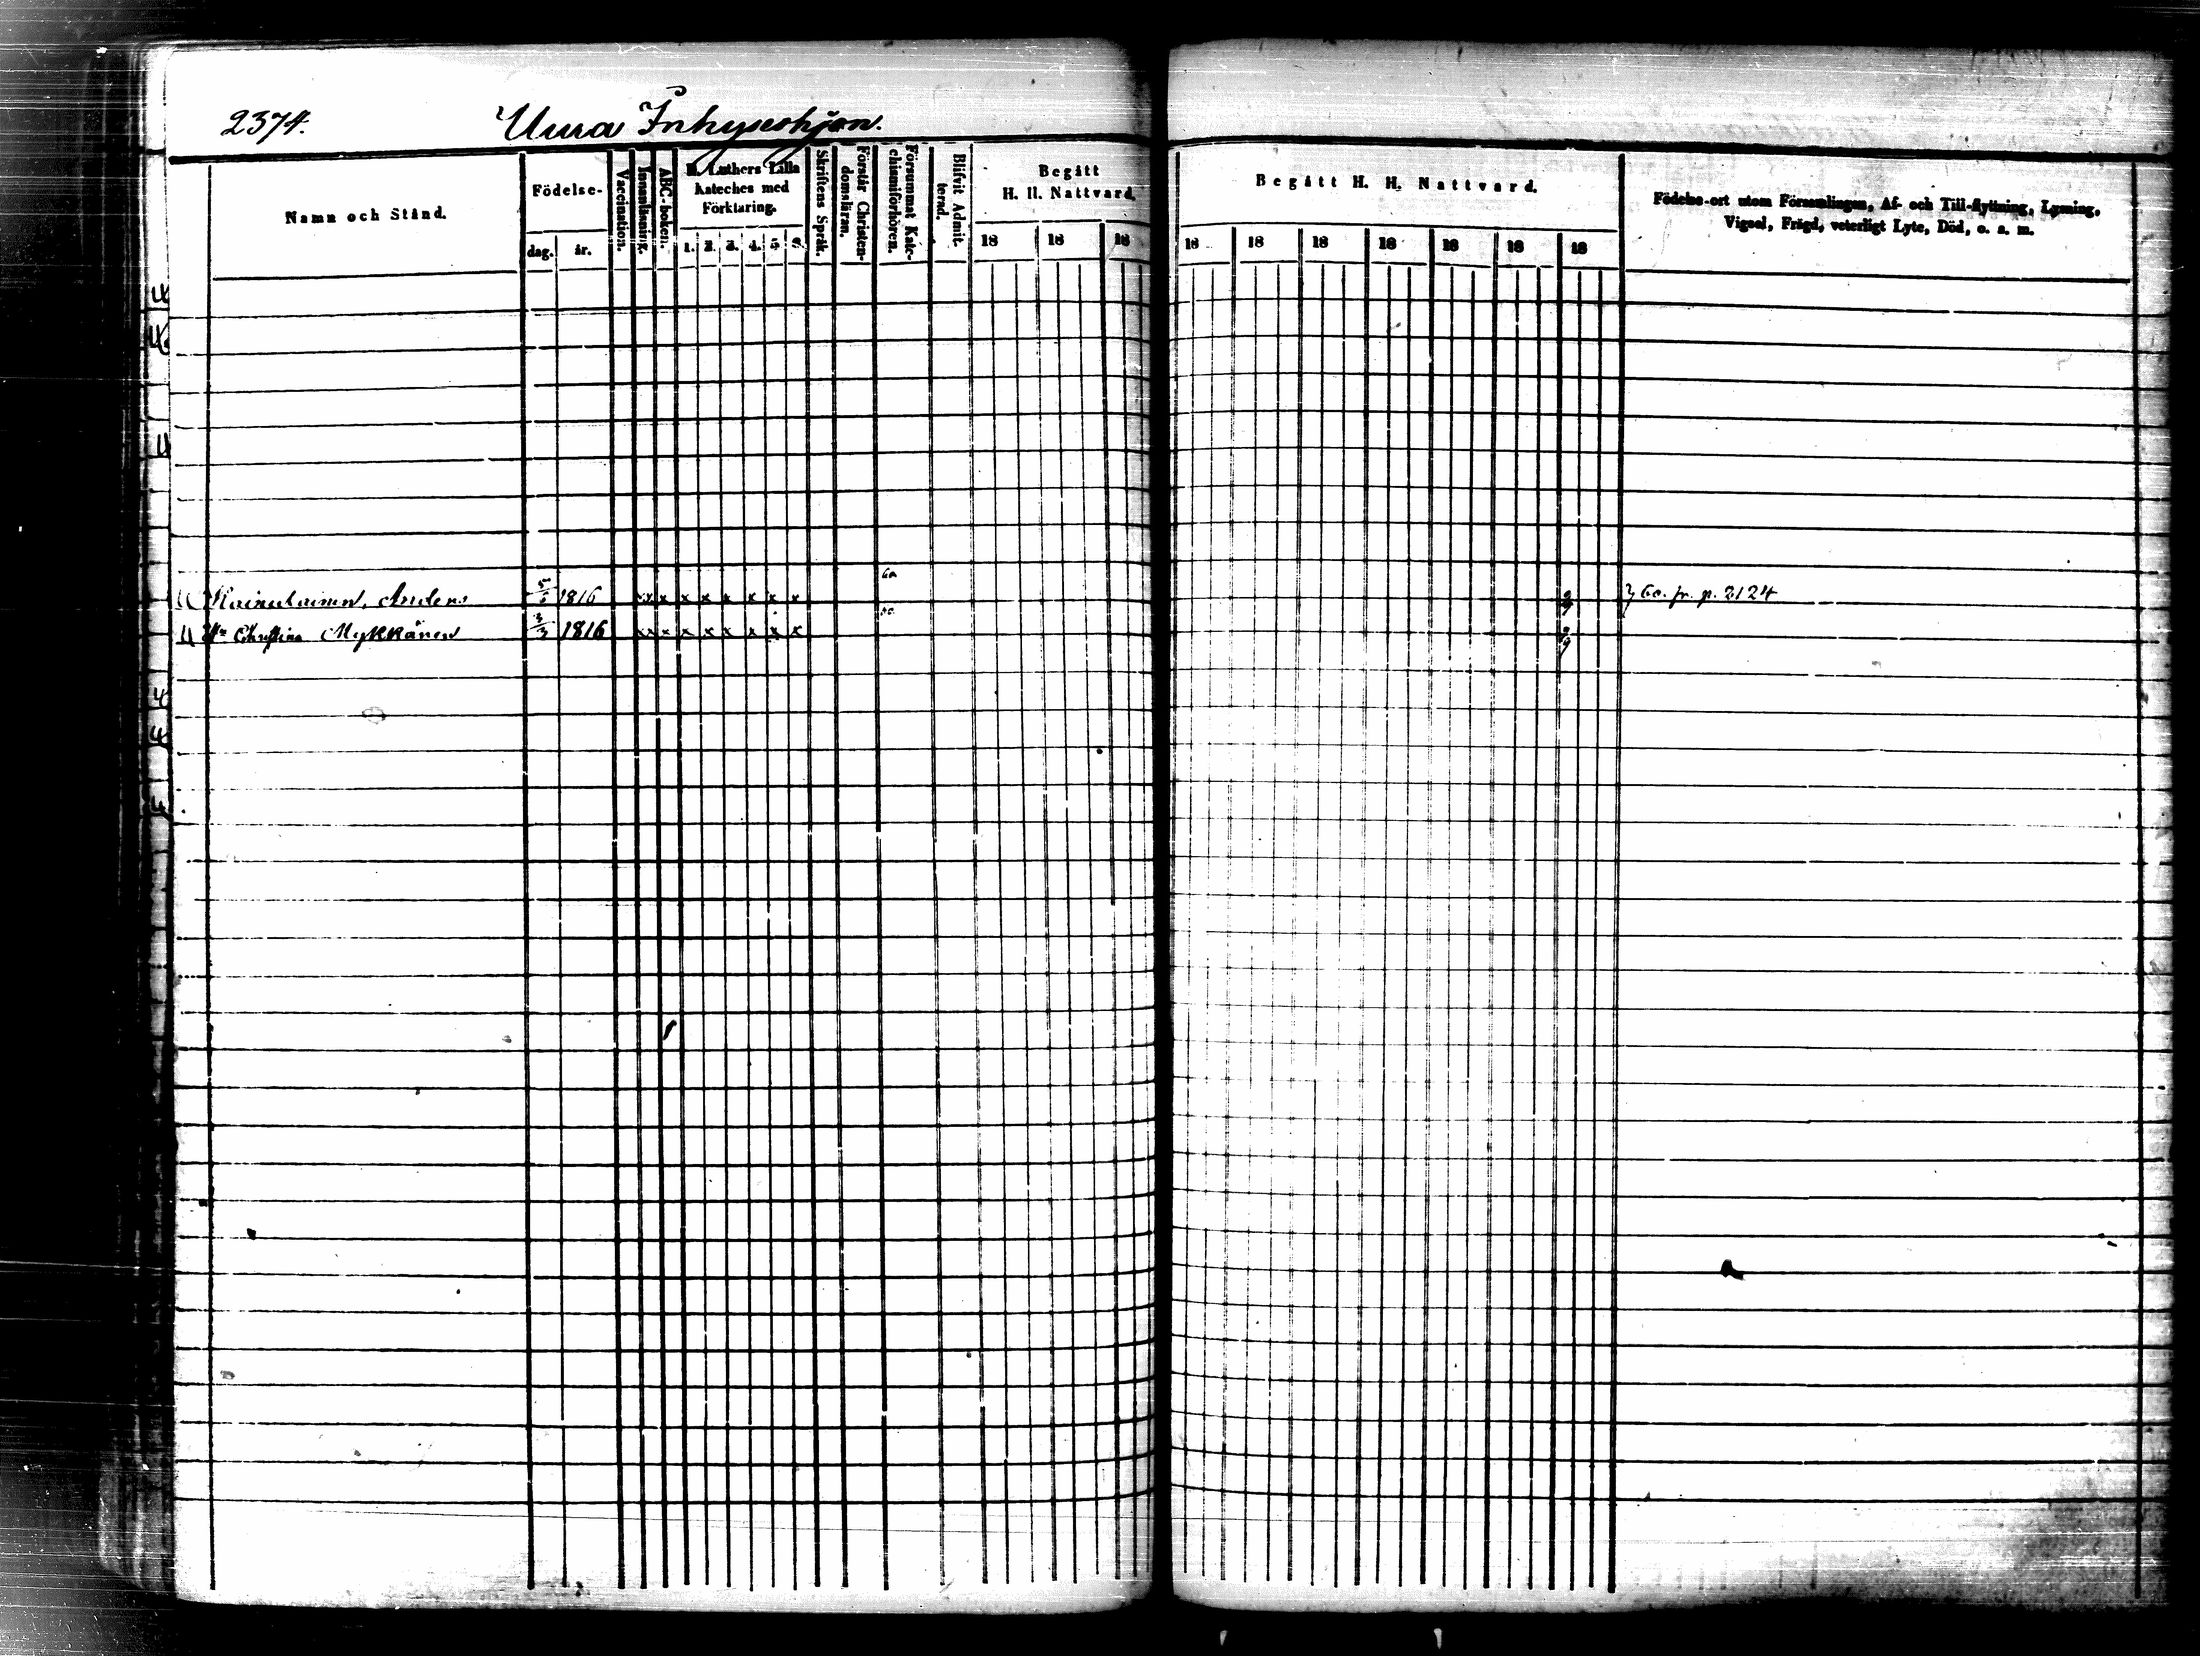 2374. Uura Inhyseshjon.
Namn och Stånd.
Födelse-
dag. år.
Vaccination.
Innanläsning.
ABC-boken.
D. Luthers Lilla
Kateches med
Förklaring.
1. 2. 3. 4. 5 6.
Skriftens Språk.
Förstår Christen-
domsläran.
Försummat Kate-
chismiförhören.
Blifvit Admit-
terad.
Begått
H. H. Nattvard.
18 18 18
Begått H. H. Nattvard.
18 18 18 18 18 18 18
Födelse-ort utom Församlingen, Af- och Till-flyttning, Lysning,
Vigsel, Frägd, veterligt Lyte, Död, o. a. m.
Anders 1816 x x x x x x x x x } 60. fr. p. 2124
Christina Mykkänen 3/3 1816 x x x x x x x x x